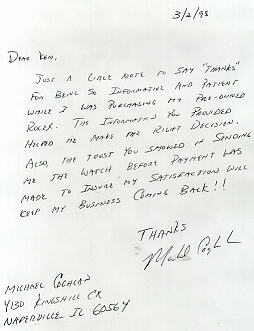 3/2/98
Dear Ken,
Just a little note to say "Thanks"
for being so informative and patient
while I was purchasing my pre-owned
Rolex. The information you provided
helped me make the right decision.
Also, the trust you showed in sending
me the watch before payment was
made to insure my satisfaction will
keep my business coming back!!
Thanks
Michael Cochran
4130 Kingshill Cr
Naperville IL 60564